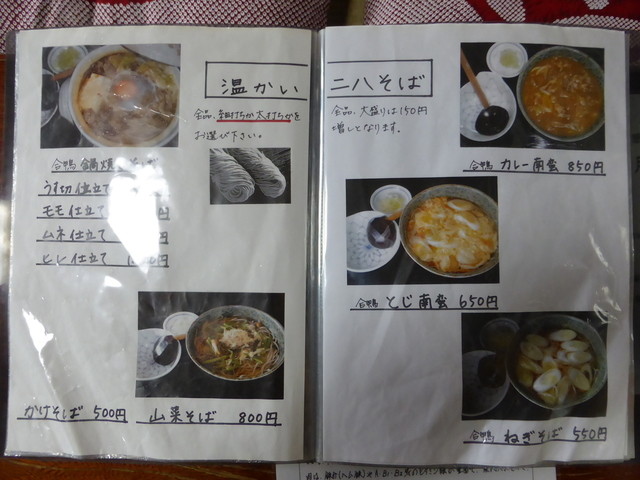 温かい
全品、細打ちか太打ちかを
お選び下さい。
合鴨 鍋焼
うす切仕立て
モモ仕立て 円
ムネ仕立て
ヒレ仕立て 円
かけそば 500円
山菜そば 800円
二八そば
全品、大盛りは150円
増しとなります。
合鴨 カレー南蛮 850円
合鴨 とじ南蛮 650円
合鴨 ねぎそば 550円